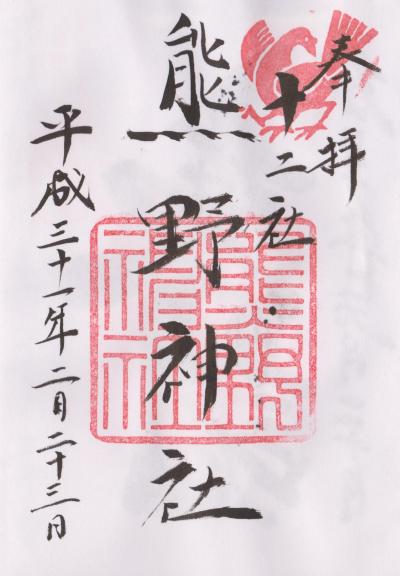 奉拝
十二社
熊野神社
平成三十一年二月二十三日
熊野神社